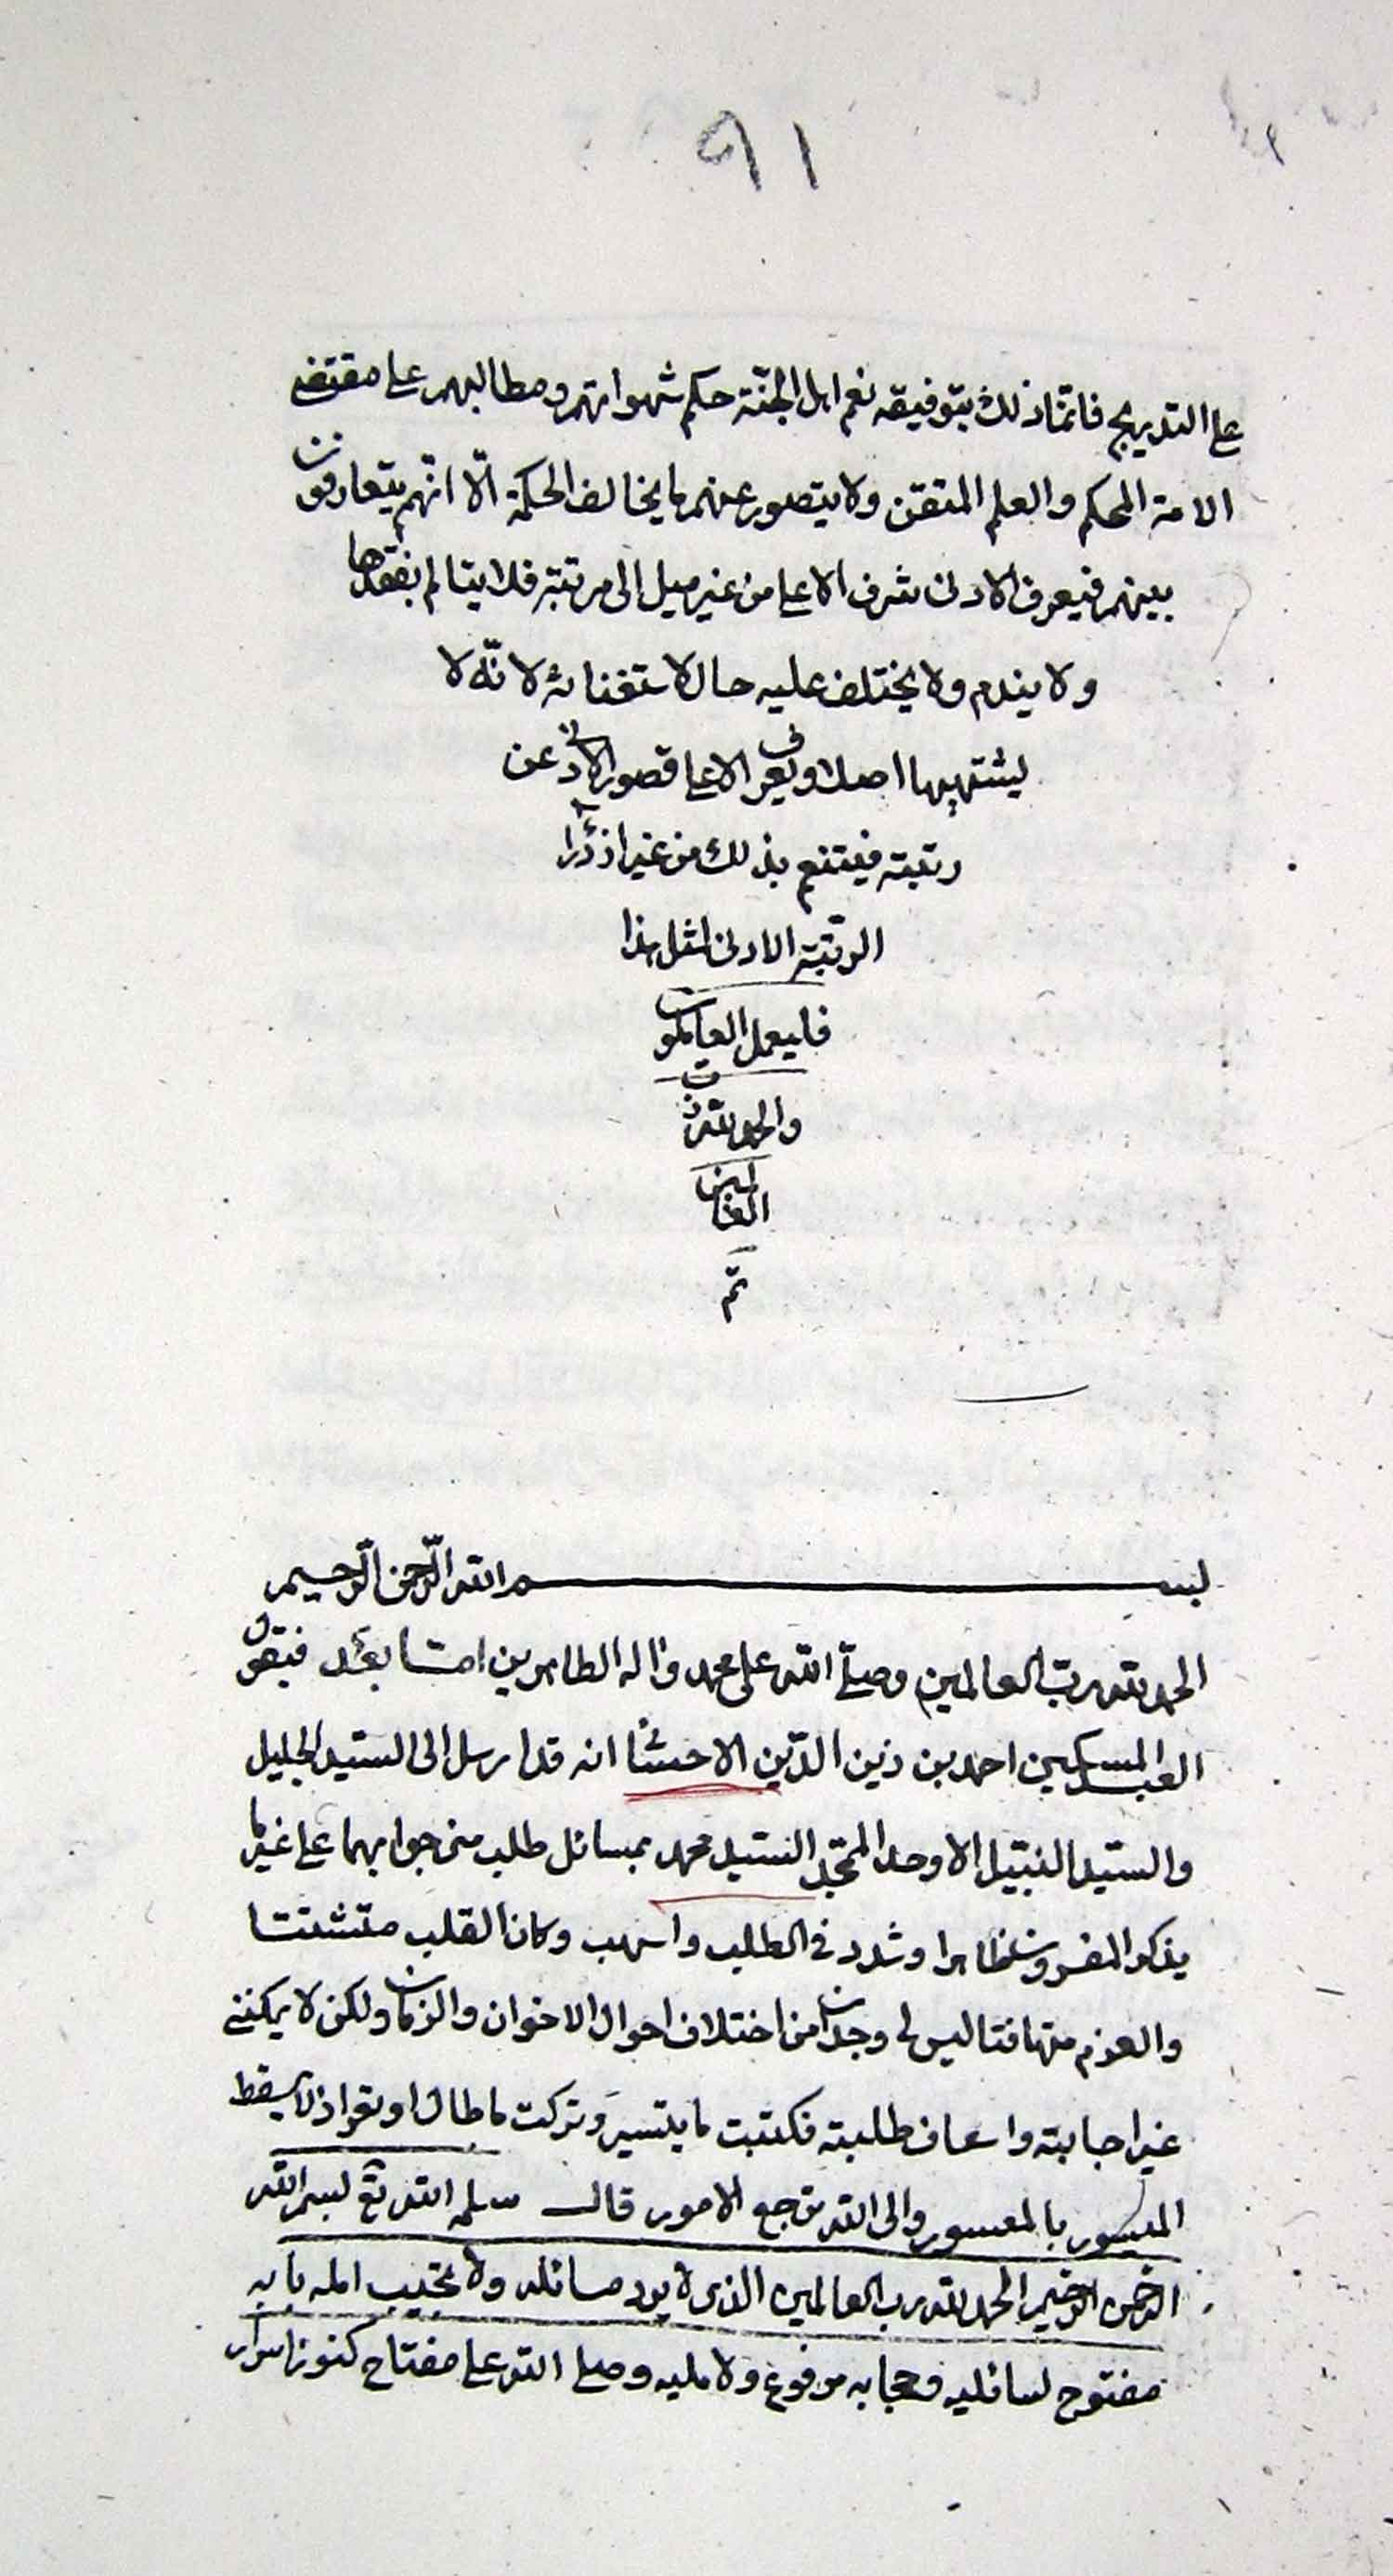 ٩١
على التدريج فانما ذلك بتوفيقه نعم اهل الجنّة حكم شهواتهم ومطالبهم على مقتضى
الامة المحكم والعلم المتقن ولا يتصور عنهم ما يخالف الحكمة الّا انّهم يتعارفون
بينهم فيعرف الادنى شرف الاعلى من غير ميل الى مرتبته فلا يتالم بفقدها
ولا يندم ولا يختلف عليه حال لاستغنائه لانّه لا
يشتهيها اصلا ويعرف الاعلى قصور الادنى عن
رتبته فيتنعم بذلك من غير ازدراء
الرتبة الادنى لمثل هذا
فليعمل العاملون
والحمد لله رب
العالمين
تم
بسم الله الرّحمن الرّحيم
الحمد لله ربّ العالمين وصلّى الله على محمد واله الطاهرين امّا بعد فيقول
العبد المسكين احمد بن زين الدّين الاحسائى انه قد ارسل الى السيّد الجليل
والسيّد النبيل الاوحد الممجّد السيّد محمد بمسائل طلب منى جوابها على غير ما
يذكر المفسرون ظاهرا وشدد فى الطلب واسهب وكان القلب متشتتا
والعزم متهافتا ليس لى وجدان من اختلاف احوال الاخوان والزمان ولكن لا يمكننى
غير اجابته واسعاف طلبته فكتبت ما يتيسر وتركت ما طال او تعر اذ لا يسقط
الميسور بالمعسور والى الله ترجع الامور قال سلمه الله تعالى بسم الله
الرحمن الرحيم الحمد لله رب العالمين الذى لا يرد سائله ولا يخيب امله بابه
مفتوح لسائليه وحجابه مرفوع ولامليه وصلى الله على مفتاح كنوز اسرار